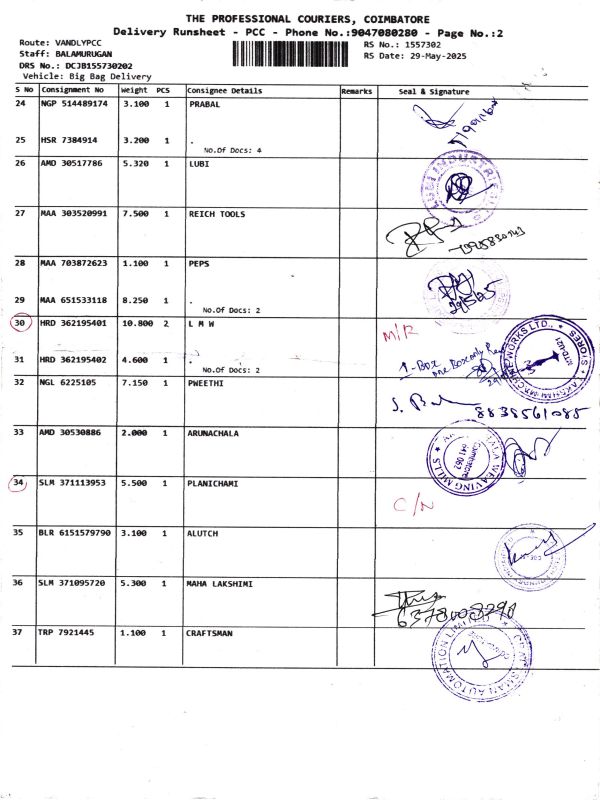 THE PROFESSIONAL COURIERS, COIMBATORE
Delivery Runsheet - PCC - Phone No.:9047080280 - Page No.:2
Route: VANDLYPCC
Staff: BALAMURUGAN
DRS No.: DCJB155730202
Vehicle: Big Bag Delivery
RS No.: 1557302
RS Date: 29-May-2025
S No Consignment No Weight PCS Consignee Details Remarks Seal & Signature
24 NGP 514489174 3.100 1 PRABAL
25 HSR 7384914 3.200 1 .
No.Of Docs: 4
26 AMD 30517786 5.320 1 LUBI
27 MAA 303520991 7.500 1 REICH TOOLS
28 MAA 703872623 1.100 1 PEPS
29 MAA 651533118 8.250 1 .
No.Of Docs: 2
29/5/25
30 HRD 362195401 10.800 2 L M W
M/R
31 HRD 362195402 4.600 1 .
No.Of Docs: 2
1-Box
one Box only
32 NGL 6225105 7.150 1 PWEETHI
8838561085
33 AMD 30530886 2.000 1 ARUNACHALA
34 SLM 371113953 5.500 1 PLANICHAMI
C/N
35 BLR 6151579790 3.100 1 ALUTCH
36 SLM 371095720 5.300 1 MAHA LAKSHIMI
37 TRP 7921445 1.100 1 CRAFTSMAN